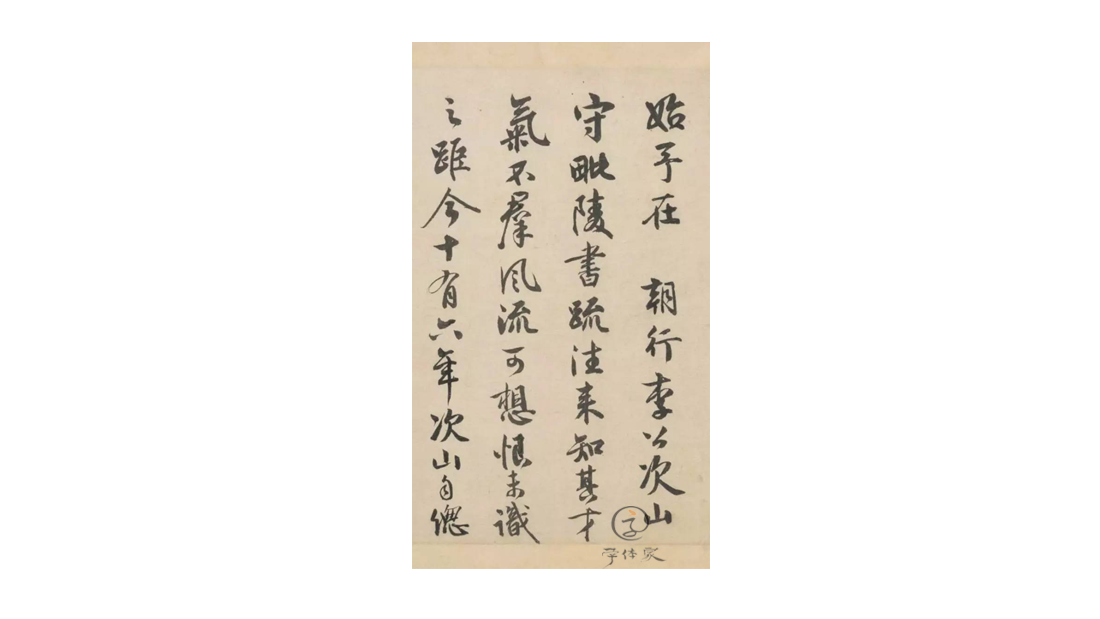 始予在 朝行李公次山
守毗陵書疏往来知其才
氣不羣風流可想恨未識
之距今十有六年次山自總
字体家